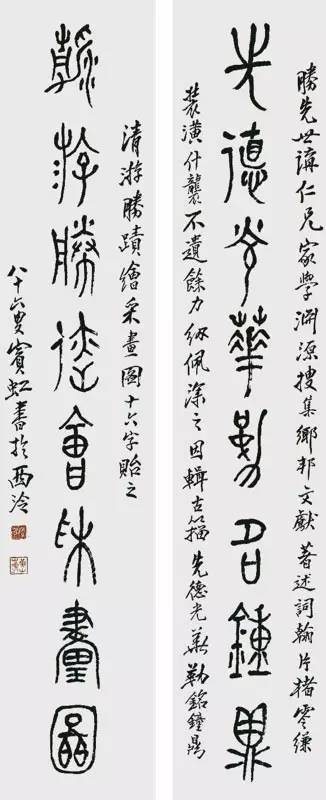 勝先世講仁兄家學淵源搜集鄉邦文獻著述詞翰片楮零縑
先德光華勒名鐘鼎
裝潢什襲不遺餘力紉佩深之因輯古籀先德光華勒銘鐘鼎
清游勝蹟繪采畫圖十六字貽之
游勝迹會采畫圖
八十六叟賓虹書於西泠